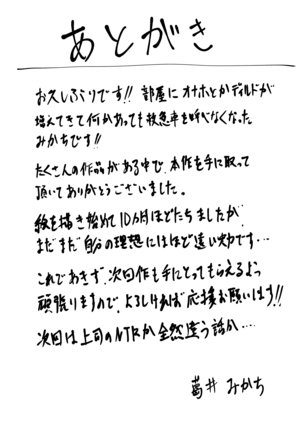 あとがき
お久しぶりです!! 部屋にオナホとかディルドが
増えてきて何かあっても救急車を呼べなくなった
みかちです!!
たくさんの作品がある中で、本作を手に取って
頂いてありがとうございました。
絵を描き始めて10ヵ月ほどたちましたが、
まだまだ自分の理想にはほど遠い次第です…
これであきず、次回作も手にとってもらえるよう
頑張りますので、よろしければ応援お願いします!!
次回は上司のNTRか全然違う話か….
葛井 みかち